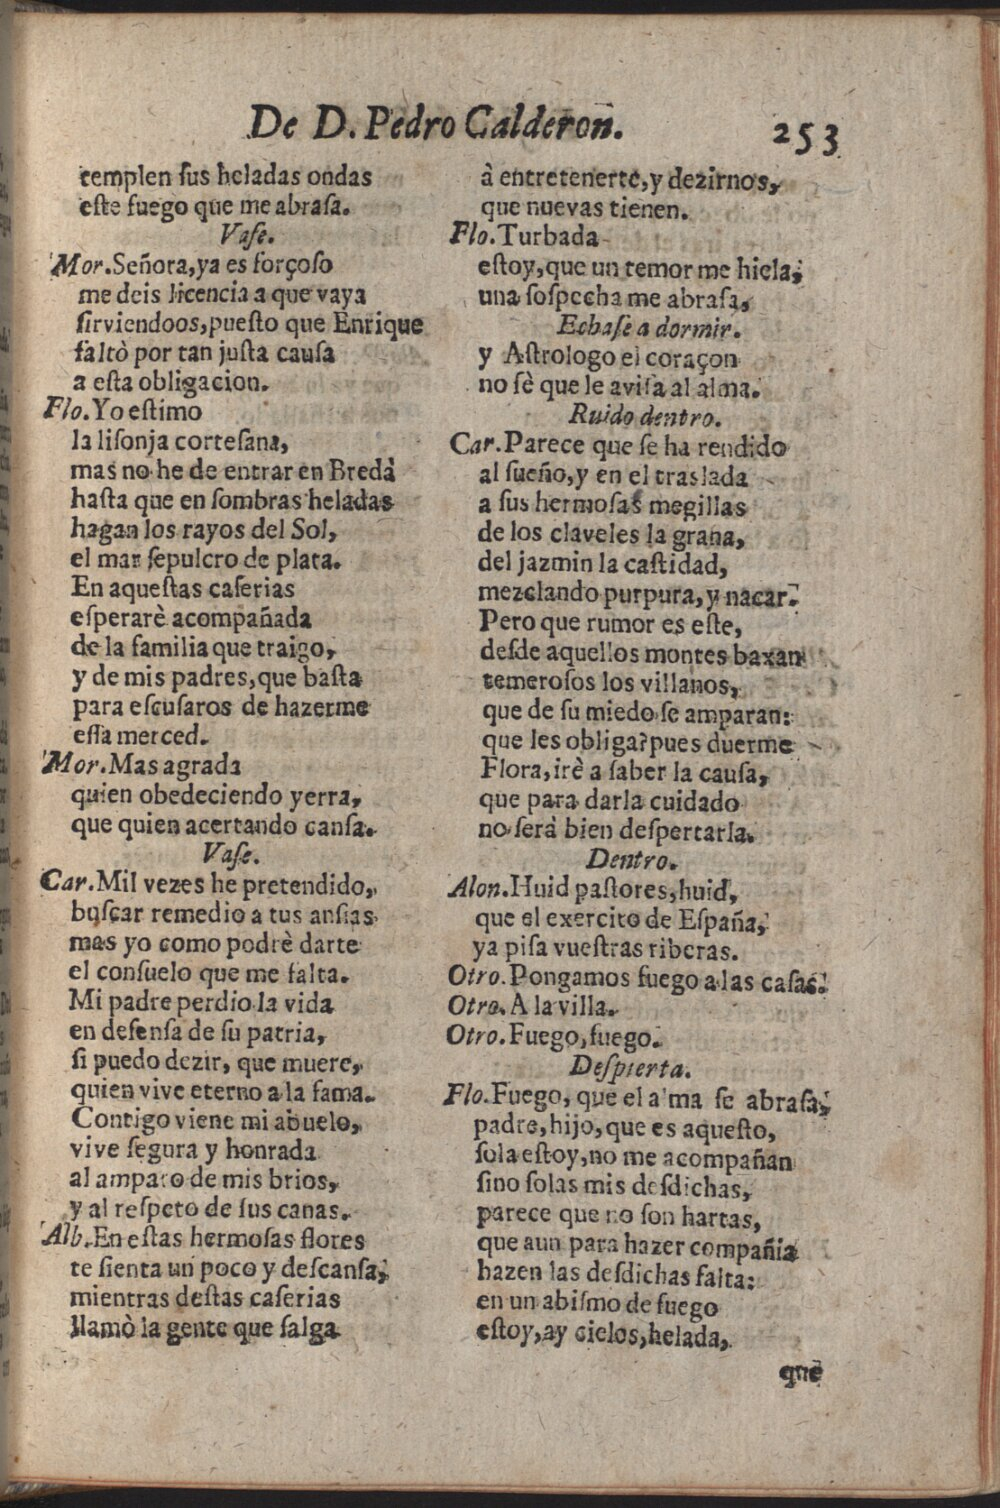 De D. Pedro Calderon.
253
templen sus heladas ondas
este fuego que me abrasa.
Vase.
Mor. Señora, ya es forçoso
me deis licencia a que vaya
sirviendoos, puesto que Enrique
faltò por tan justa causa
a esta obligacion.
Flo. Yo estimo
la lisonja cortesana,
mas no he de entrar en Bredà
hasta que en sombras heladas
hagan los rayos del Sol,
el mar sepulcro de plata.
En aquestas caserias
esperarè acompañada
de la familia que traigo,
y de mis padres, que basta
para escusaros de hazerme
essa merced.
Mor. Mas agrada
quien obedeciendo yerra,
que quien acertando cansa.
Vase.
Car. Mil vezes he pretendido,
buscar remedio a tus ansias
mas yo como podrè darte
el consuelo que me falta.
Mi padre perdio la vida
en defensa de su patria,
si puedo dezir, que muere,
quien vive eterno a la fama.
Contigo viene mi abuelo,
vive segura y honrada
al amparo de mis brios,
y al respeto de sus canas.
Alb. En estas hermosas flores
te sienta un poco y descansa,
mientras destas caserias
llamò la gente que salga
à entretenerte, y dezirnos,
que nuevas tienen.
Flo. Turbada
estoy, que un temor me hiela,
una sospecha me abrasa,
Echase a dormir.
y Astrologo el coraçon
no sè que le avisa al alma.
Ruido dentro.
Car. Parece que se ha rendido
al sueño, y en el traslada
a sus hermosas megillas
de los claveles la grana,
del jazmin la castidad,
mezclando purpura, y nacar.
Pero que rumor es este,
desde aquellos montes baxan
temerosos los villanos,
que de su miedo se amparan:
que les obliga? pues duerme
Flora, irè a saber la causa,
que para darla cuidado
no serà bien despertarla.
Dentro.
Alon. Huid pastores, huid,
que el exercito de España,
ya pisa vuestras riberas.
Otro. Pongamos fuego a las casas.
Otro. A la villa.
Otro. Fuego, fuego.
Despierta.
Flo. Fuego, que el alma se abrasa,
padre, hijo, que es aquesto,
sola estoy, no me acompañan
sino solas mis desdichas,
parece que no son hartas,
que aun para hazer compañia
hazen las desdichas falta:
en un abismo de fuego
estoy, ay cielos, helada,
que